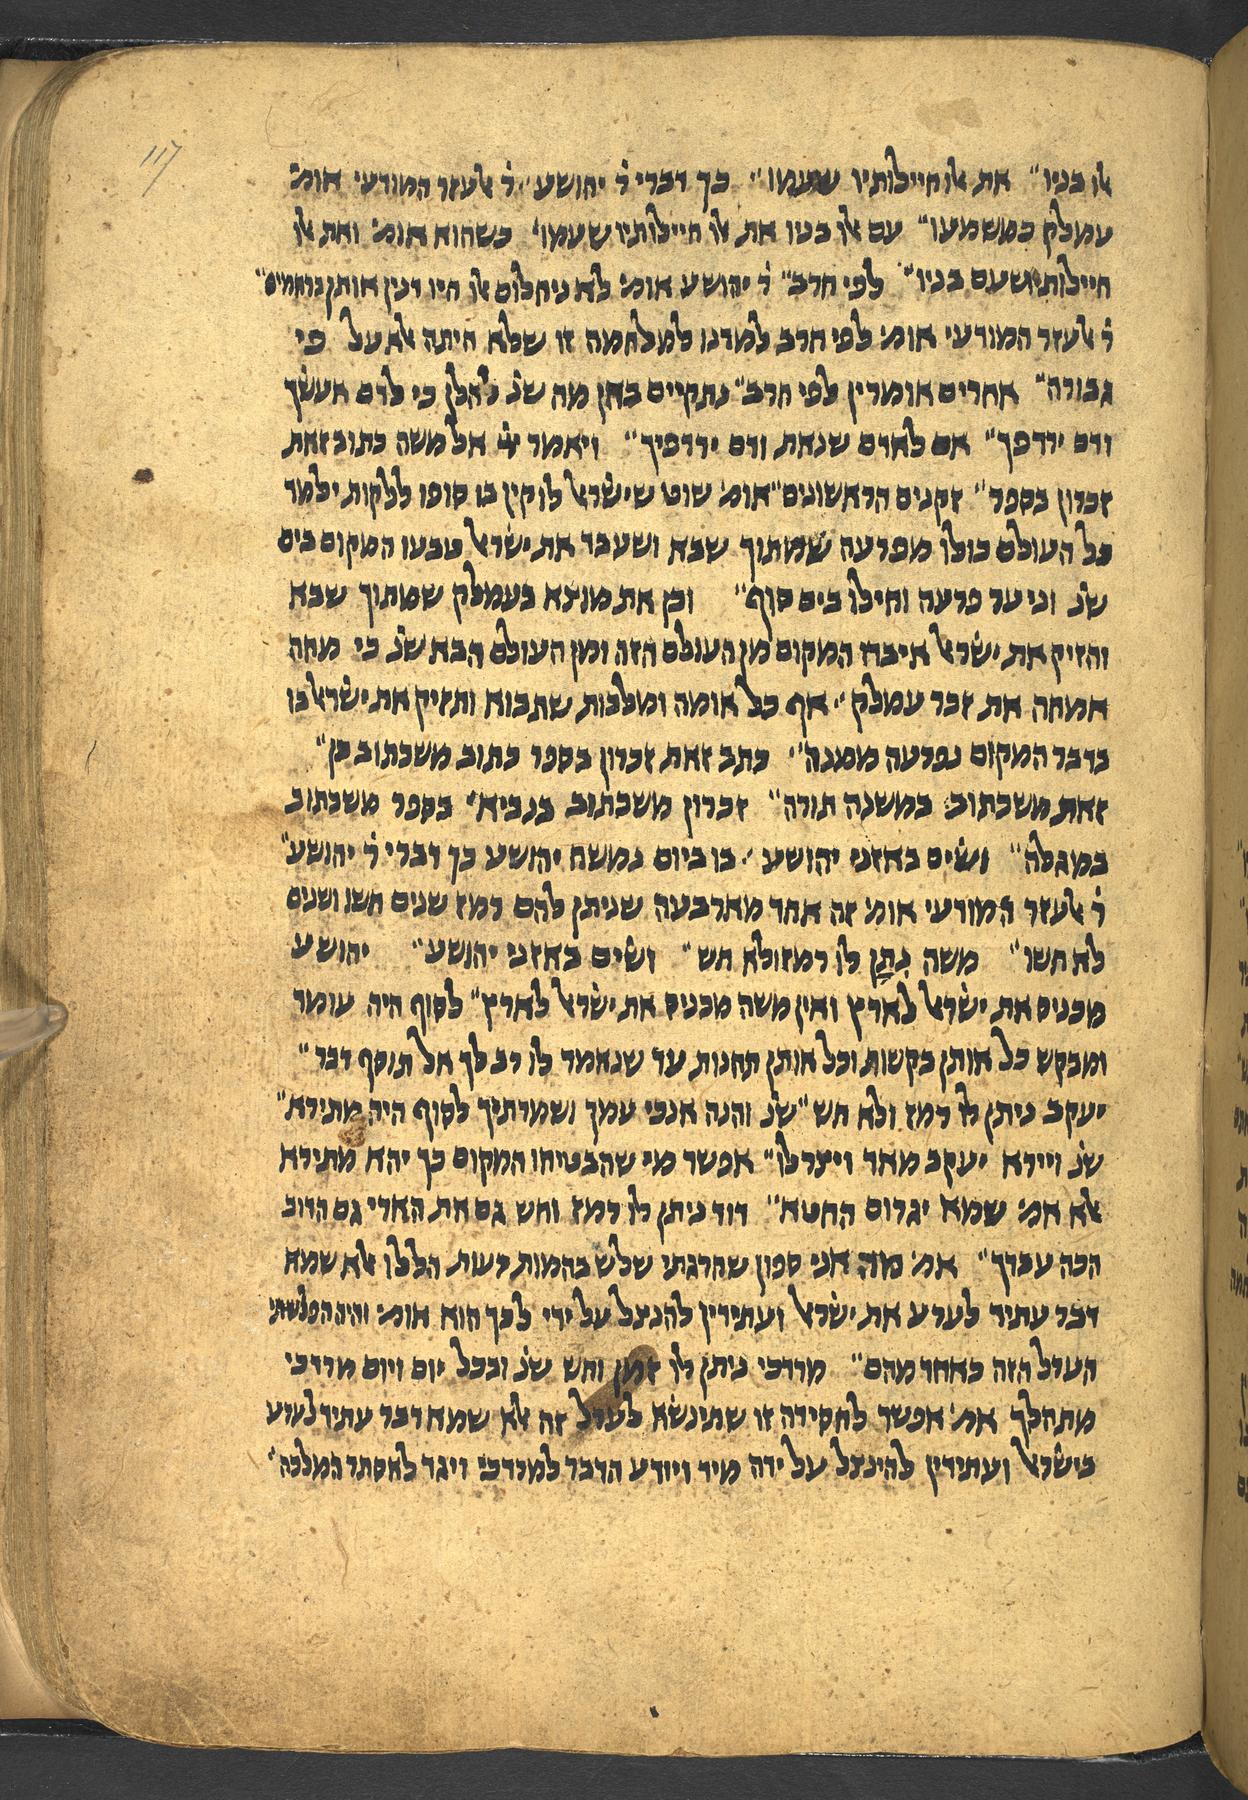 117
אלו בניו״ את אלו חיילותיו שעמו״ כך דברי ר׳ יהושע״ ר׳ אלעזר המודעי אומ׳
עמלק כמשמעו״ עם אלו בניו את אלו חיילותיו שעמו׳ כשהוא אומ׳ ואת אלו
חיילותיו שעם בניו״ לפי חרב״ ר׳ יהושע אומ׳ לא ניוולום אלו היו דנין אותן ברחמים״
ר׳ אלעזר המודעי אומ׳ לפי חרב למדנו למלחמה זו שלא היתה אלא על פי
גבורה״ אחרים אומרין לפי חרב״ נתקיים באן מה שנ׳ להלן כי לדם אעשך
ודם ירדפך״ אם לאדם שנאת ודם ירדפיך״ ויאמר יי׳ אל משה כתוב זאת
זכרון בספר״ זקנים הראשונים״ אומ׳ שוט שישראל לוקין בו סופו ללקות ילמד
כל העולם כולו מפרעה שמתוך שבא ושעבד את ישראל טבעו המקום בים
שנ׳ וניער פרעה וחילו בים סוף״ וכן את מוצא בעמלק שמתוך שבא
והזיק את ישראל איבדו המקום מן העולם הזה ומן העולם הבא שנ׳ כי מחה
אמחה את זכר עמלק״ אף כל אומה ומלכות שתבוא ותזיק את ישראל בו
בדבר המקום נפרעה ממנה״ כתב זאת זכרון בספר כתוב משכתוב כן״
זאת משכתוב במשנה תורה״ זכרון משכתוב בנביא׳ בספר משכתוב
במגלה״ ושים באזני יהושע״ בו ביום נמשח יהושע כך דברי ר׳ יהושע״
ר׳ אלעזר המודעי אומ׳ זה אחד מארבעה שניתן להם רמז שנים חשו ושנים
לא חשו״ משה נתן לו רמז ולא חש״ ושים באזני יהושע״ יהושע
מכניס את ישראל לארץ ואין משה מכניס את ישראל לארץ״ לסוף היה עומד
ומבקש כל אותן בקשות וכל אותן תחנות עד שנאמר לו רב לך אל תוסף דבר״
יעקב ניתן לו רמז ולא חש״ שנ׳ והנה אנכי עמך ושמרתיך לסוף היה מתירא״
שנ׳ ויירא יעקב מאד ויצר לו״ אפשר מי שהבטיחו המקום כך יהא מתירא
אלא אמ׳ שמא יגרום החטא״ דוד ניתן לו רמז וחש גם את הארי גם הדוב
הכה עבדך״ אמ׳ מה אני ספון שהרגתי שלש בהמות רעות הללו אלא שמא
דבר עתיד לערע את ישראל ועתידין להנצל על ידי לכך הוא אומ׳ והיה הפלשתי
הערל הזה כאחד מהם״ מרדכי ניתן לו זמן וחש שנ׳ ובכל יום ויום מרדכי
מתהלך אמ׳ אפשר לחסידה זו שתינשא לערל זה אלא שמא דבר עתיד לערע
בישראל ועתידין להינצל על ידה מיד ויודע הדבר למרדכי ויגד לאסתר המלכה׳